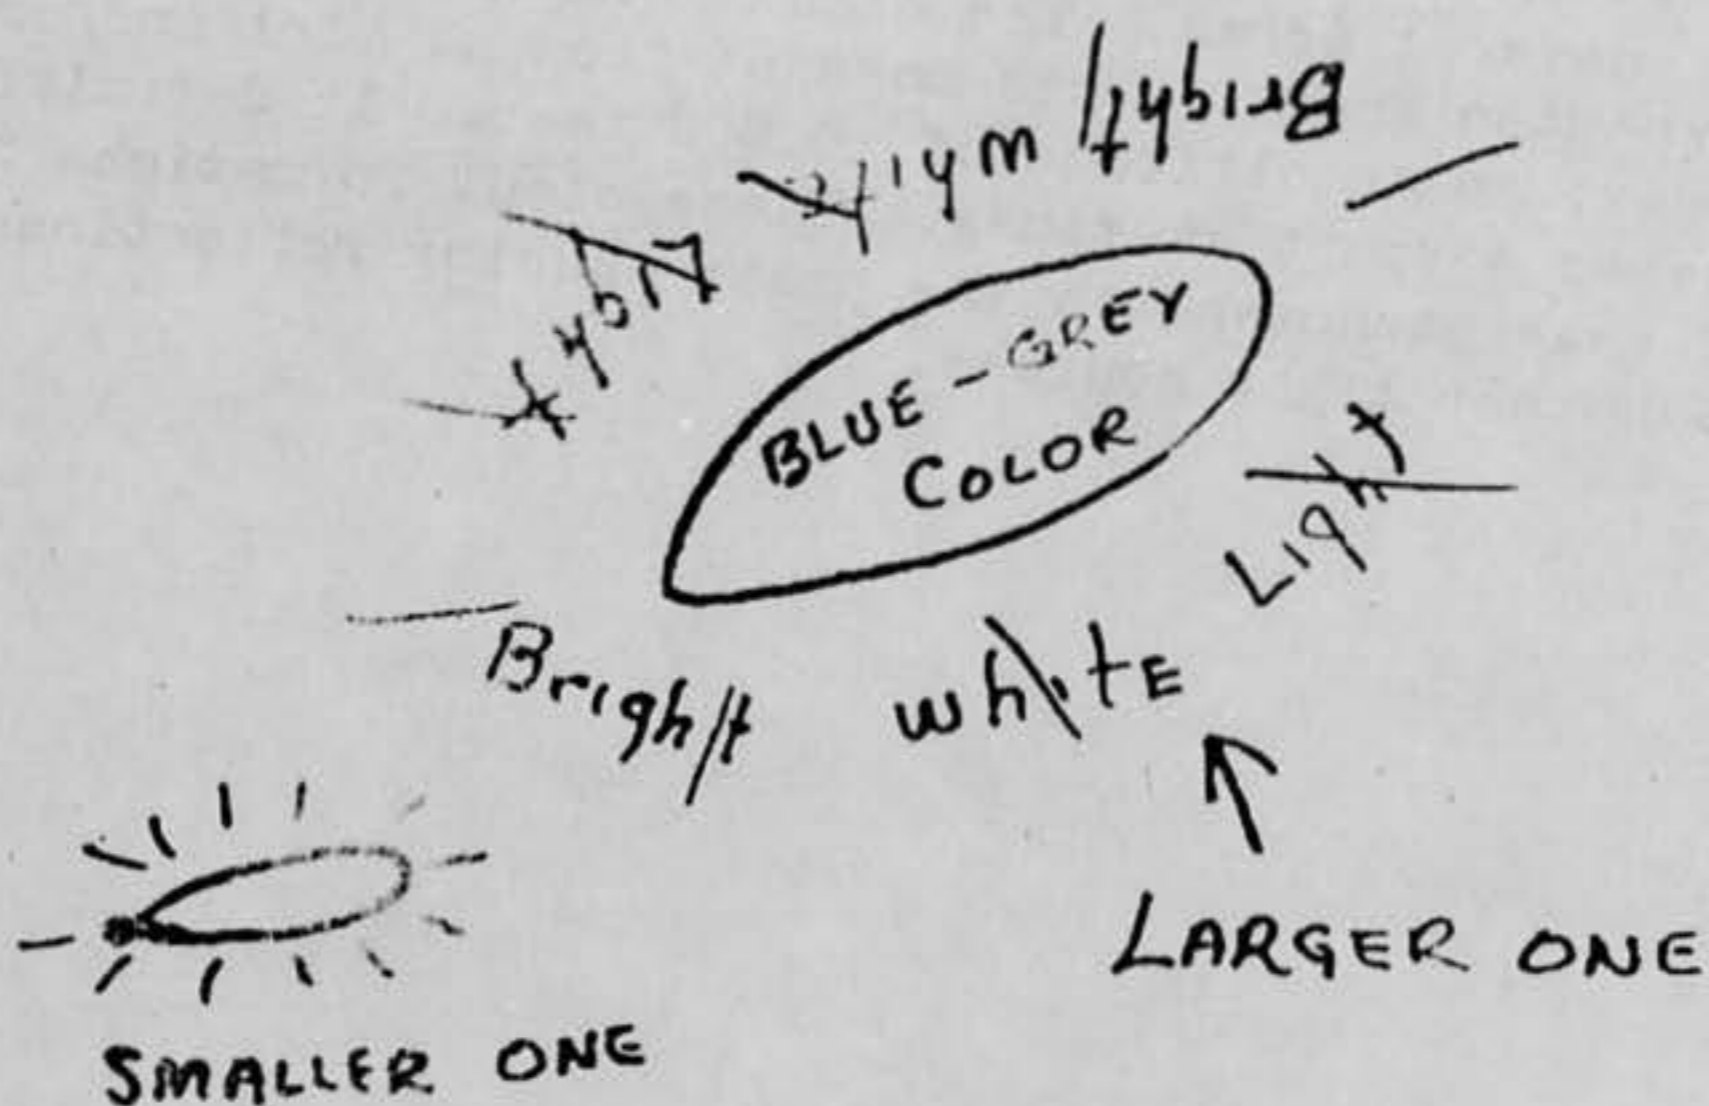 Bright white
Light
BLUE - GREY
COLOR
Light
Bright whitE
LARGER ONE
SMALLER ONE